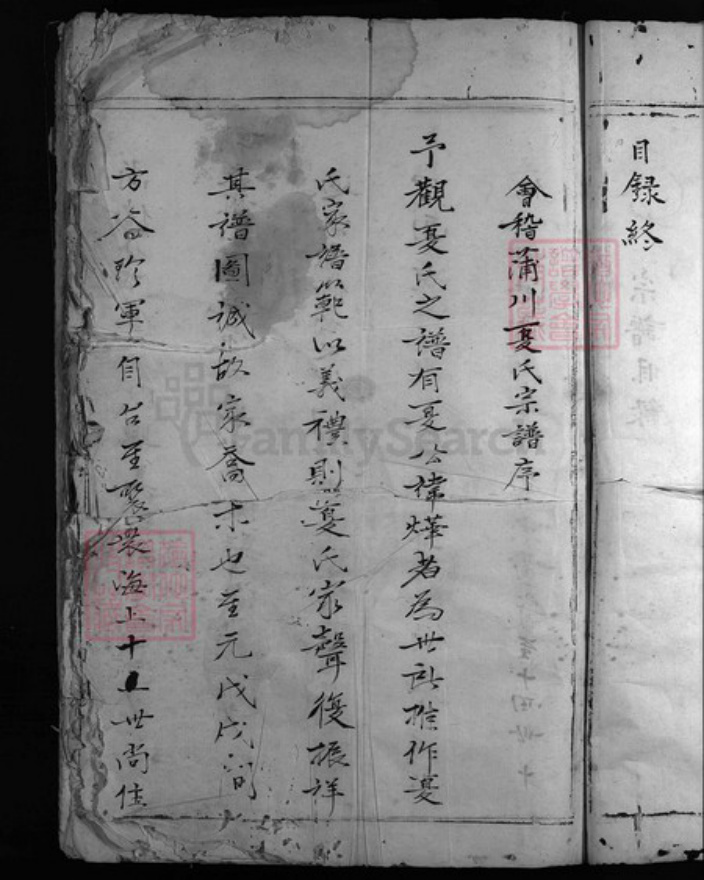 目録終
會稽蒲川夏氏宗譜序
予觀夏氏之譜有夏公諱燁者為世所推作夏
氏家譜以範以義禮則夏氏家聲復振詳
其譜圖誠故家喬木也至元戊戌間
方谷珍軍自台至襲濃海上十五世尚佳
FamilySearch